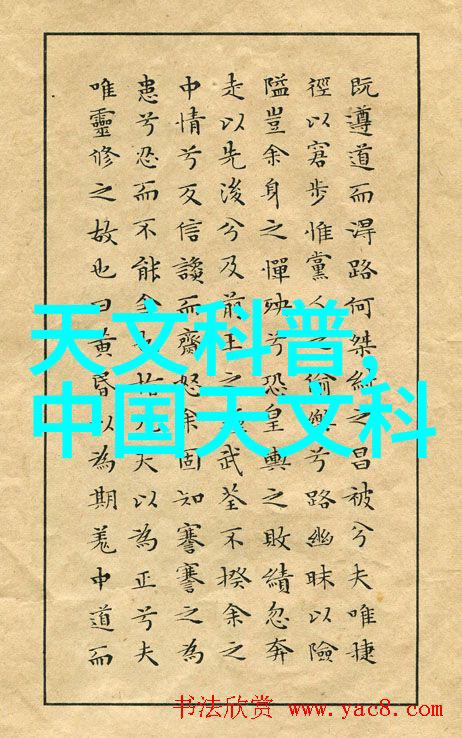 既遵道而得路何桀紂之昌被兮夫唯捷
徑以窘步惟黨人偷樂兮路幽昧以險
隘豈余身之憚殃兮恐皇輿之敗績忽奔
走以先後兮及前王之武荃不揆余之
中情兮反信讒而齋怒余固知謇謇之為
患兮忍而不能舍也指天以為正兮夫
唯靈修之故也曰黃昏以為期羌中道而
天文科普,
中国天文科
书法欣赏 www.yac8.com